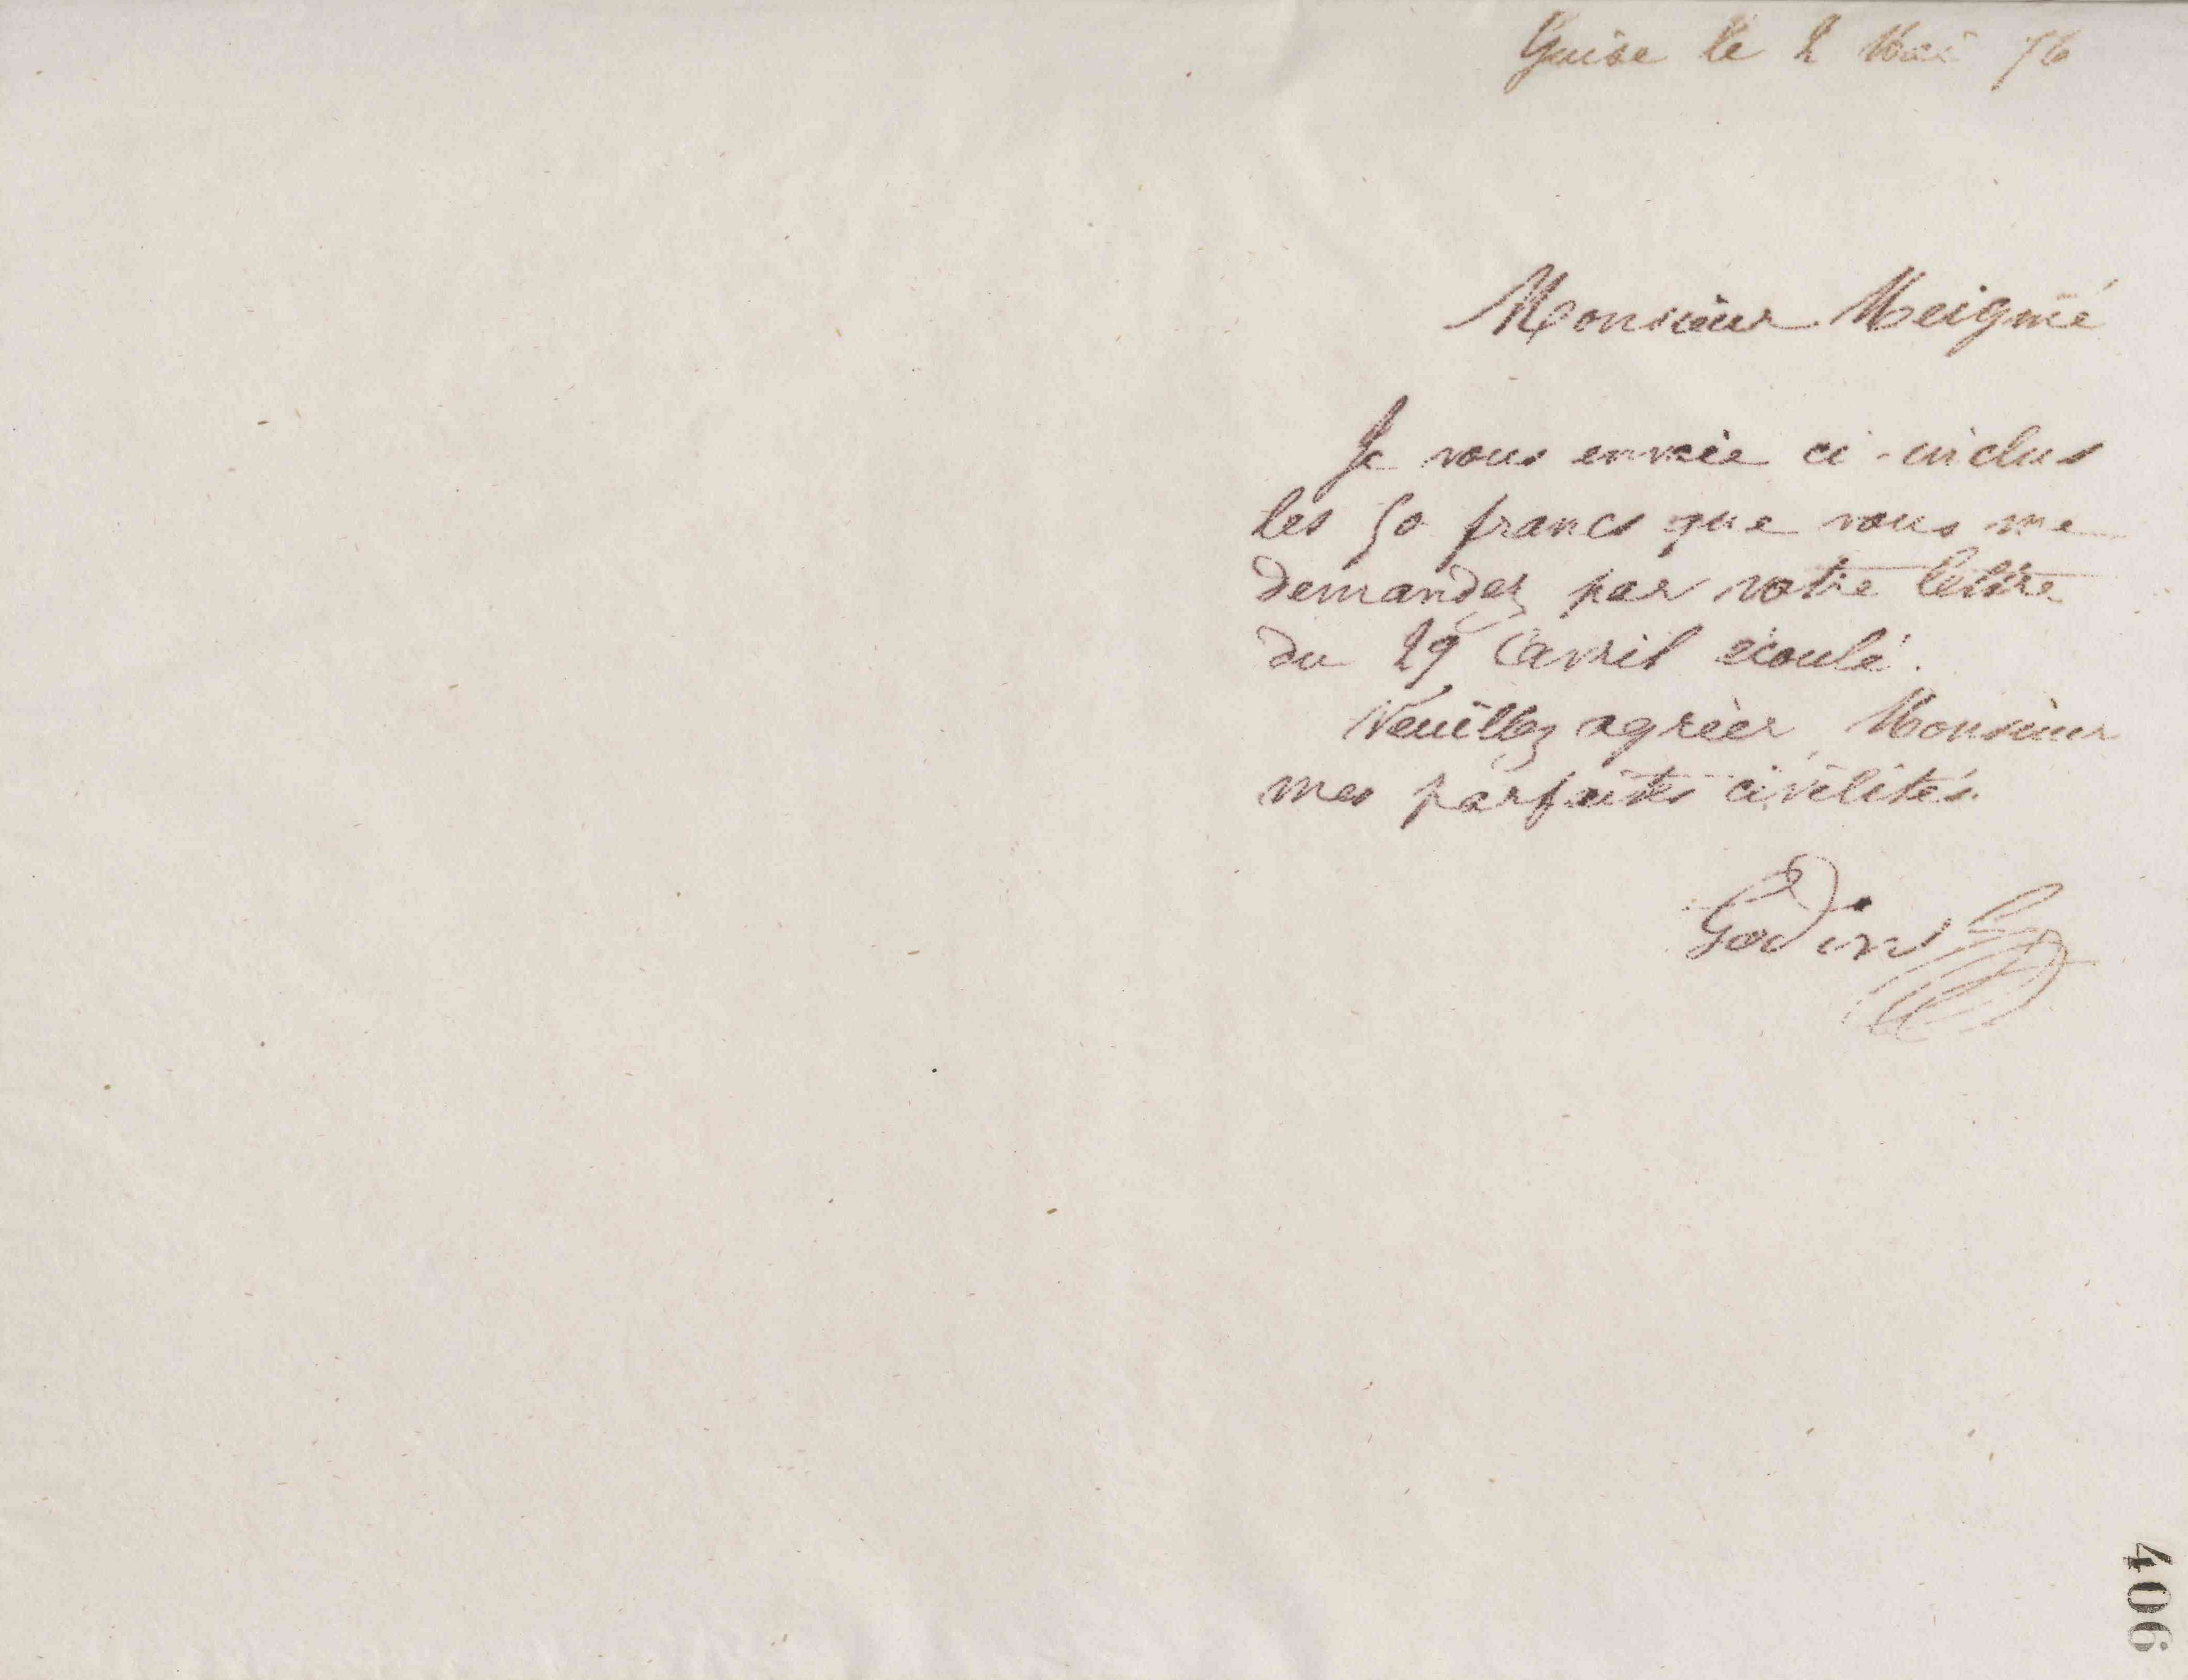 Guise le 2 Mai 76
Monsieur Meigné
Je vous envoie ci-inclus
les 50 francs que vous me
demandez par votre lettre
du 29 avril écoulé.
Veuillez agréer, Monsieur
mes parfaites civilités.
Godin
406